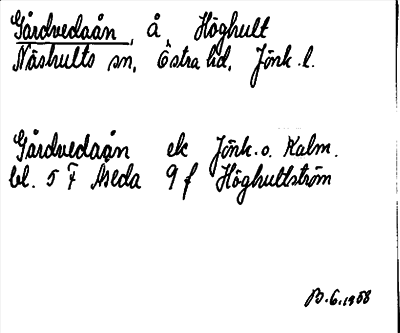 Gårdvedaån, å, Höghult
Näshults sn, Östra hd, Jönk. l.
Gårdvedaån ek Jönk. o. Kalm.
bl. 5 F Åseda 9 f Höghultström
B. 6. 1958